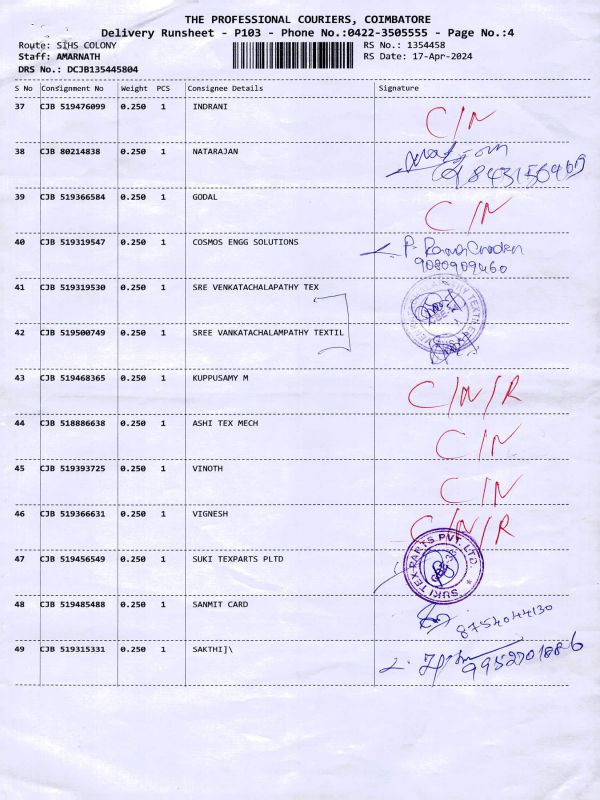 THE PROFESSIONAL COURIERS, COIMBATORE
Delivery Runsheet - P103 - Phone No.:0422-3505555 - Page No.:4
Route: SIHS COLONY RS No.: 1354458
Staff: AMARNATH RS Date: 17-Apr-2024
DRS No.: DCJB135445804
S No Consignment No Weight PCS Consignee Details Signature
37 CJB 519476099 0.250 1 INDRANI C/N
38 CJB 80214838 0.250 1 NATARAJAN
39 CJB 519366584 0.250 1 GODAL C/N
40 CJB 519319547 0.250 1 COSMOS ENGG SOLUTIONS
9080909460
41 CJB 519319530 0.250 1 SRE VENKATACHALAPATHY TEX
42 CJB 519500749 0.250 1 SREE VANKATACHALAMPATHY TEXTIL
43 CJB 519468365 0.250 1 KUPPUSAMY M C/N/R
44 CJB 518886638 0.250 1 ASHI TEX MECH C/N
45 CJB 519393725 0.250 1 VINOTH C/N
46 CJB 519366631 0.250 1 VIGNESH C/N/R
47 CJB 519456549 0.250 1 SUKI TEXPARTS PLTD SUKI TEX PARTS PVT. LTD.
48 CJB 519485488 0.250 1 SANMIT CARD 8754044130
49 CJB 519315331 0.250 1 SAKTHI]\ 9952701886